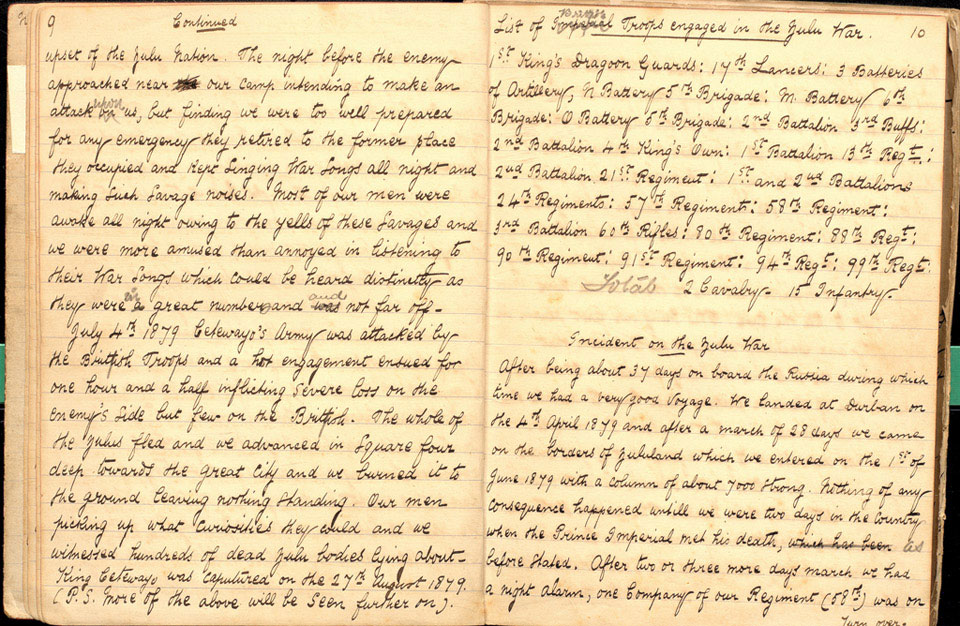 9 Continued
upset of the Zulu Nation. The night before the enemy
approached near our Camp intending to make an
attack upon us, but finding we were too well prepared
for any emergency they retired to the former place
they occupied and kept Singing War Songs all night and
making Such Savage noises. Most of our men were
awake all night owing to the yells of these Savages and
we were more amused than annoyed in listening to
their War Songs which could be heard distinctly as
they were in great number and and not far off-
July 4th 1879 Cetewayo's Army was attacked by
the Brittish Troops and a hot engagement ensued for
one hour and a half inflicting Severe loss on the
Enemy's Side but few on the Brittish. The whole of
the Zulus fled and we advanced in Square four
deep towards the great City and we burned it to
the ground leaving nothing Standing. Our men
picking up what curiosities they could and we
witnessed hundreds of dead Zulu bodies lying about-
King Cetewayo was Caputured on the 27th August 1879.
(P.S. More of the above will be Seen further on).
List of Imperial Troops engaged in the Zulu War. 10
1st King's Dragoon Guards: 17th Lancers: 3 Batteries
of Artillery, N Battery 5th Brigade: M. Battery 6th
Brigade: O Battery 5th Brigade: 2nd Battalion 3rd Buffs:
2nd Battalion 4th King's Own: 1st Battalion 13th Regt:
2nd Battalion 21st Regiment: 1st and 2nd Battalions
24th Regiments: 57th Regiments: 58th Regiment:
3rd Battalion 60th Rifles: 80th Regiment: 88th Regt:
90th Regiment: 91st Regiment: 94th Regt: 99th Regt:
Totals 2 Cavalry- 15 Infantry-
Incident on the Zulu War
After being about 37 days on board the Russia during which
time we had a very good Voyage. We landed at Durban on
the 4th April 1879 and after a march of 28 days we came
on the borders of Zululand which we entered on the 1st of
June 1879 with a column of about 7000 Strong. Nothing of any
Consequence happened untill we were two days in the Country
when the Prince Imperial met his death, which has been as
before Stated. After two or three more days march we had
a night Alarm, one Company of our Regiment (58th) was on
Turn over-